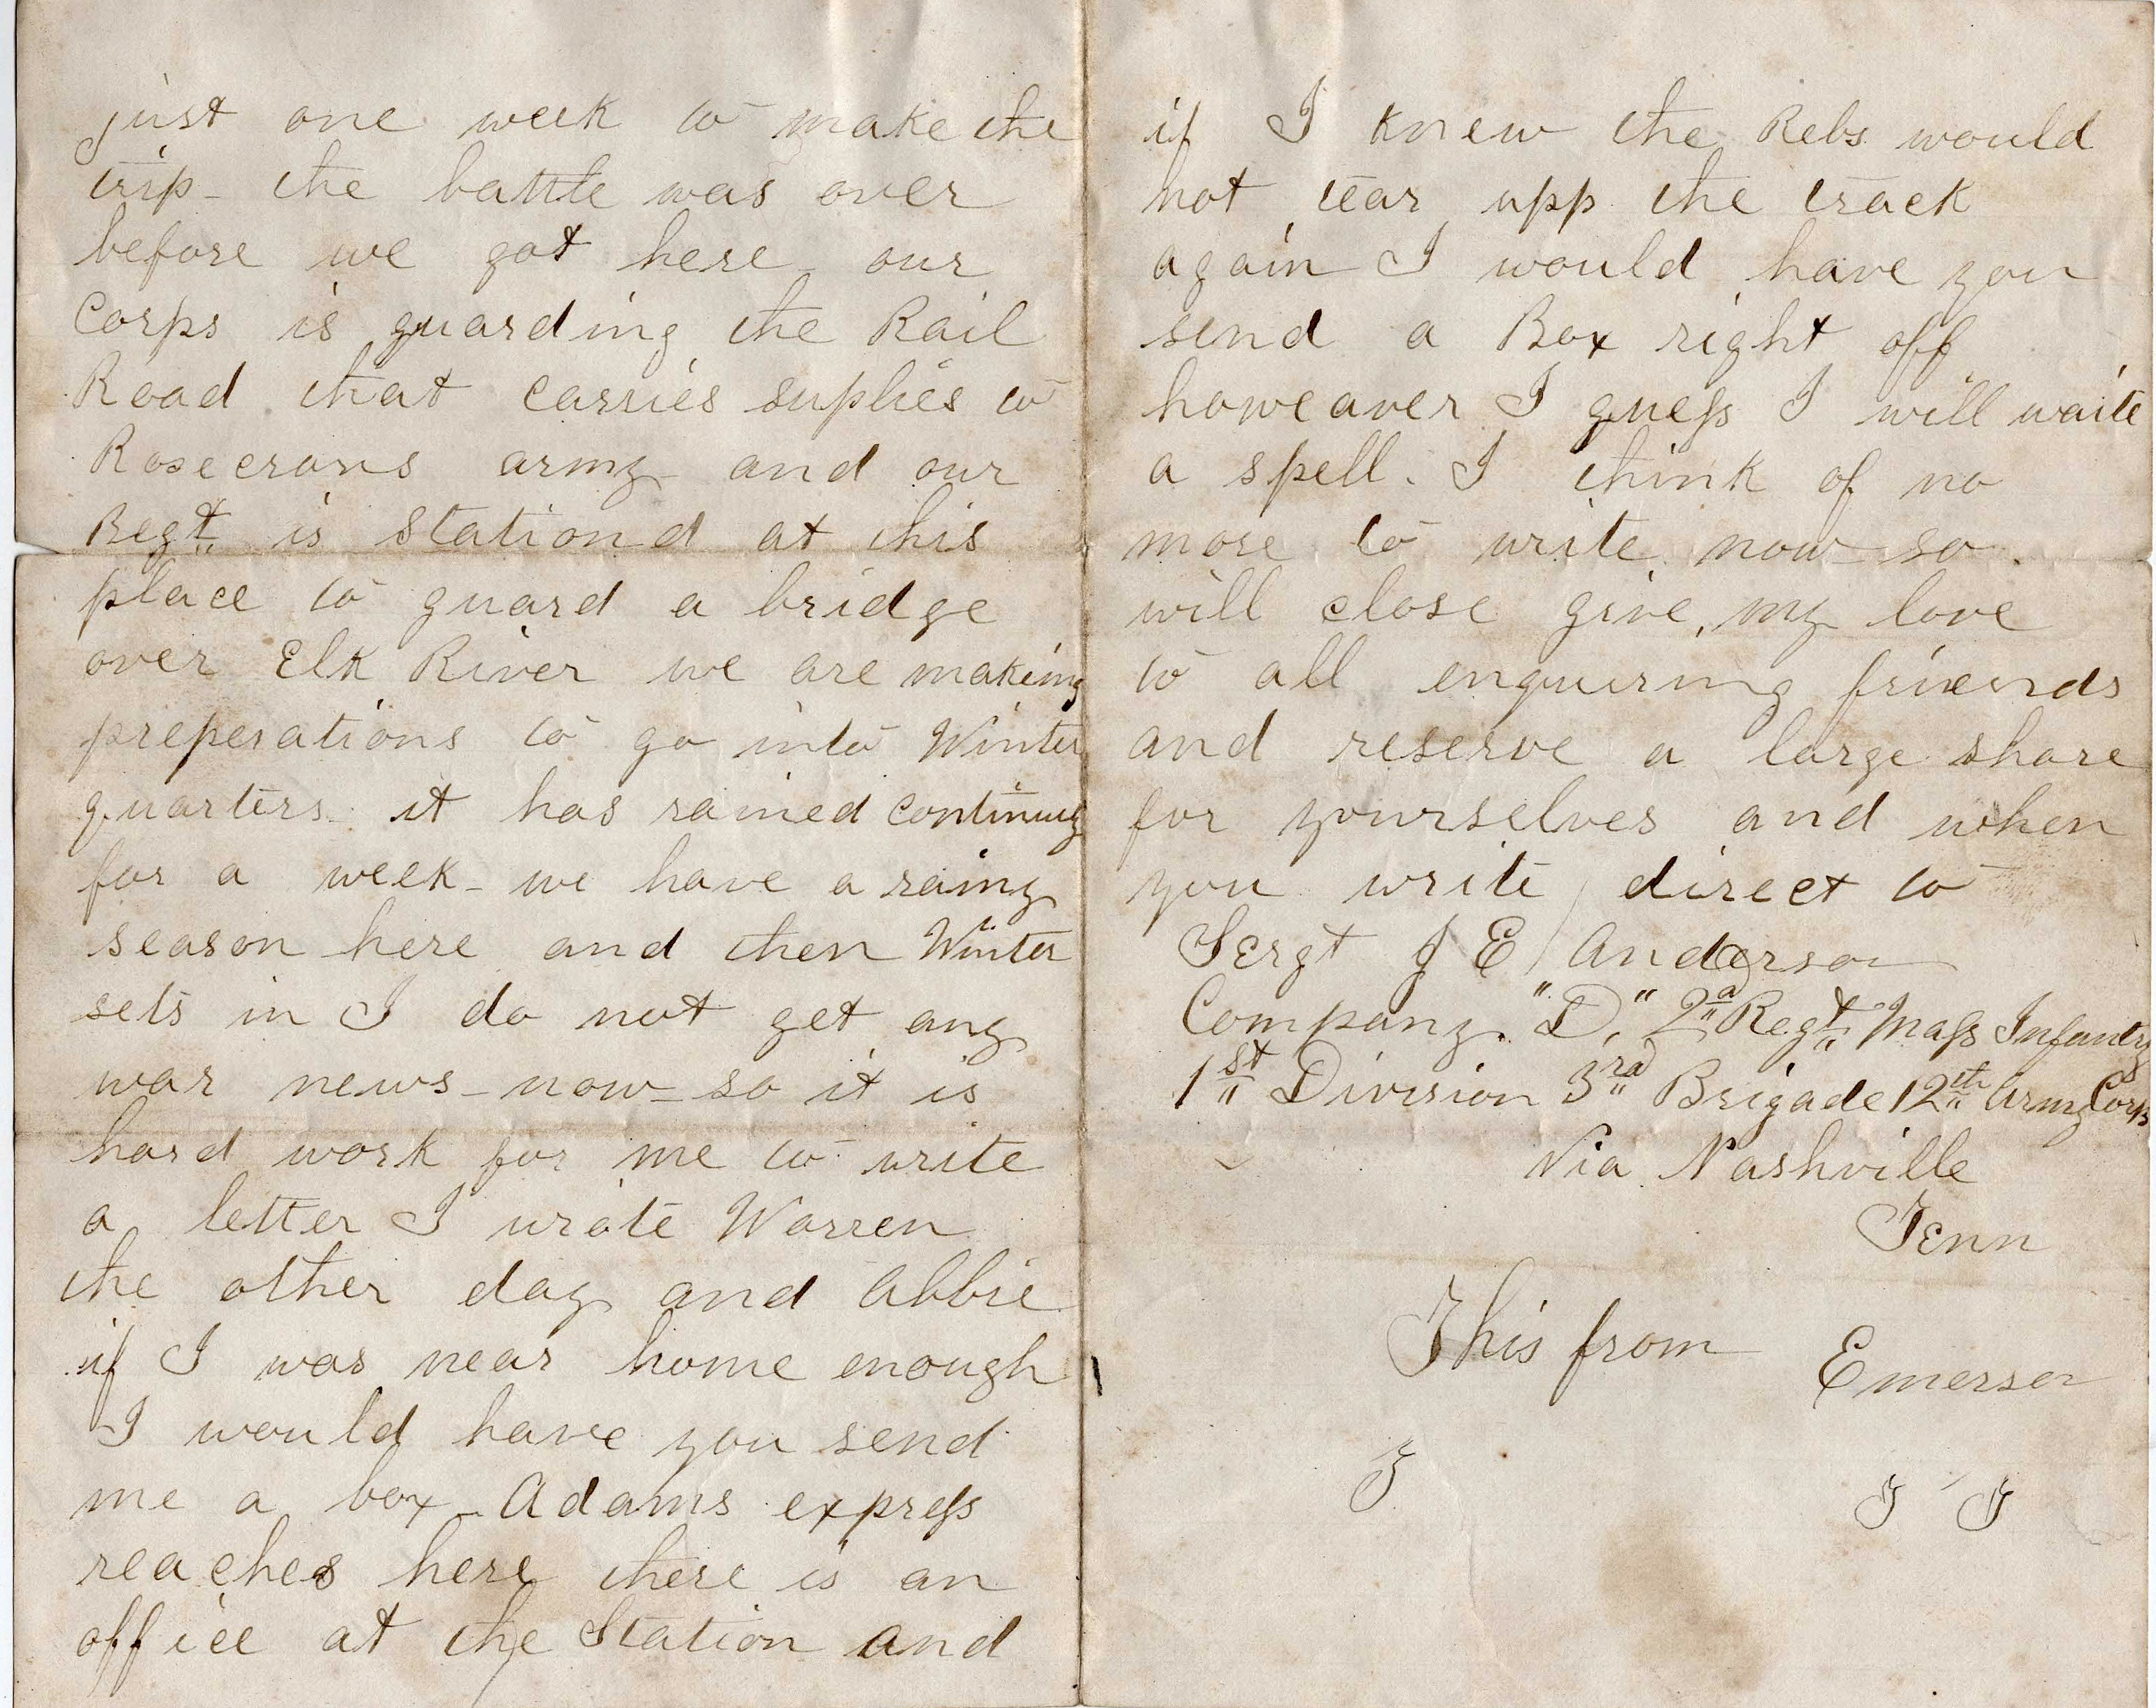 just one week to make the
trip - the battle was over
before we got here our
Corps is guarding the Rail
Road that carries suplies to
Rosecrans army and our
Regt is Stationd at this
place to guard a bridge
over Elk River we are making
preperations to go into Winter
quarters it has rained continuly
for a week - we have a rainy
season here and then Winter
sets in I do not get any
war news - now - so it is
hard work for me to write
a letter I wrote Warren
the other day and Abbie
if I was near home enough
I would have you send
me a box - Adams express
reaches here there is an
office at the Station and
if I knew the Rebs would
not tear upp the track
again I would have you
send a Box right off
howeaver I guess I will waite
a spell. I think of no
more to write now - so
will close give my love
to all enquiring friends
and reserve a large share
for yourselves and when
you write direct to
Sergt J E Anderson
Company "D," 2d Regt Mass Infantry
1st Division 3rd Brigade 12th Army Corps
Via Nashville
Tenn
This from Emerson